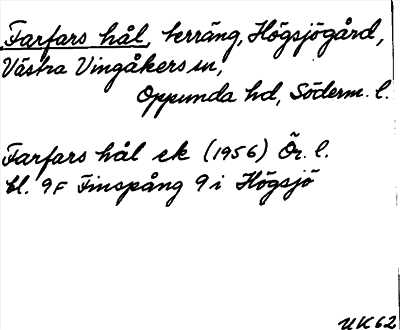 Farfars hål, terräng, Högsjögård,
Västra Vingåkers sn,
Oppunda hd, Söderm. l.
Farfars hål ek (1956) Ör. l.
bl. 9F Finspång 9 i Högsjö
UK 62